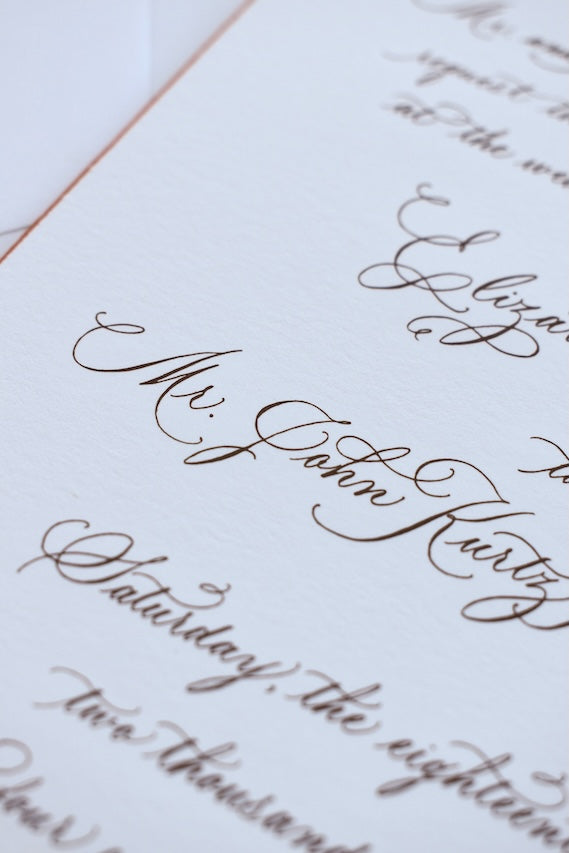 Mr. and
request th
at the wed
Eliza
to
Mr. John Kurtz
Saturday, the eighteen
two thousand
four